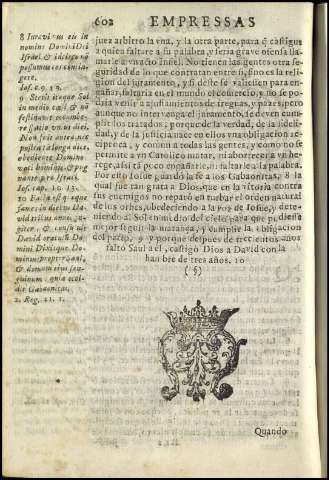 602 EMPRESSAS
8 Iuravimus eis in
nomine Domini Dei
Israel, & idcirco nō
possumus eos contin-
gere.
Ios. c. 9. 19.
9 Stetit itaque Sol
in medio cæli, & nō
festinavit occumbe-
re spatio unius diei.
Non fuit antea, nec
postea tā longa dies,
obediente Domino
voci hominis, & pug
nante pro Israel.
Ios. cap. 10. 13.
10 Facta est quoque
fames in diebus Da-
vid tribus annis iu-
giter, & consuluit
David oraculū Do-
mini. Dixitque Do-
minus: propter Saul,
& domum eius san-
guinum, quia occi-
dit Gabaonitas.
2. Reg. 21. 1.
juez arbitro la una, y la otra parte, para q̄ castigue
a quien faltare a su palabra, y seria grave ofensa lla-
marle a un acto infiel. No tienen las gentes otra se-
guridad de lo que contratan entre si, sino es la reli-
gion del juramento, y si deste se valiessen para en-
gañar, faltaria en el mundo el comercio, y no se po
dria venir a ajustamientos de treguas, y pazes, pero
aunque no intervenga el juramento, se deven cum-
plir los tratados: porque de la verdad, de la fideli-
dad, y de la justicia nace en ellos una obligacion re-
ciproca, y comun a todas las gentes, y como no se
permite a un Catolico matar, ni aborrecer a un he-
rege, assi tāpoco engañarle, ni faltarle a la palabra.
Por esto Iosue guardò la fe a los Gabaonitas, 8 la
qual fue tan grata a Dios, que en la vitoria contra
sus enemigos no reparò en turbar el orden natural
de los orbes, obedeciendo a la voz de Iosue, y dete-
niendo al Sol en medio del cielo para que pudiesse
mejor seguir la matança, y cumplir la obligacion
del pacto, 9 y porque despues de trecientos años
faltò Saul a èl, castigò Dios a David con la
hambre de tres años. 10
(§)
Quando